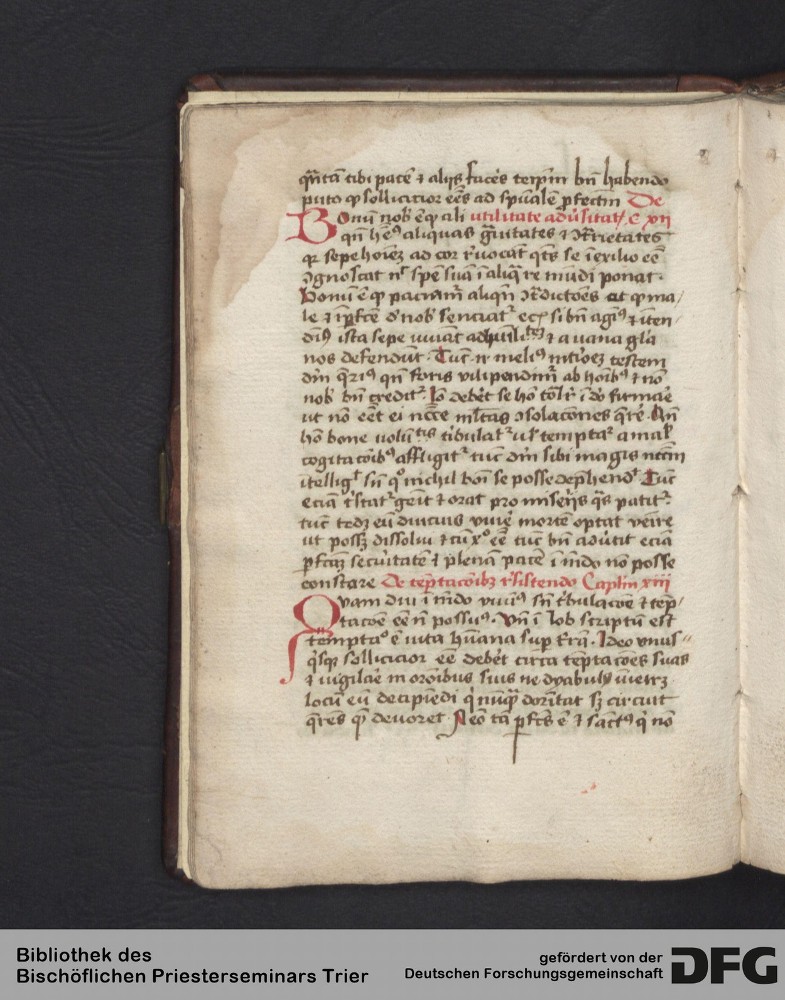 q̄ntā tibi pacē ⁊ alijs faceˢ
puto ꝙ sollicitior eēs ad spūalē ꝓfectm̄ De
Bonū nob̄ ē ꝙ ali utilitate adūsitat᷑ C xii
qn̄ hēꝰ aliquas gͣuitates ⁊ ꝯtrietates
qꝛ sepe hoīeꝫ ad cor ruocāt se ī exilio eē
ꝯgnoscat nͨ spē suā ī aliqͣ re mūdi ponat
Bonū ē ꝙ paciam̄ aliqn̄ ꝯtͣdictōēs et ꝙ ma/
le ⁊ īꝑfcē d̓ nob̄ senciatᷣ eciā si bn̄ agiꝰ ⁊ iten
dīꝰ ista sepe iuuāt ad huīlitēꝫ ⁊ a uana gl̄a
nos defendūt Tūc n̄ meliꝰ testem
dm̄ q̄riꝰ qn̄ foris uilipendim̄ ab hoībꝰ ⁊ nō
nob̄ bn̄ creditᷣ Iō debēt se hō ī dō firmaē
ut nō eēt ei nc̄ce ml̄tas ꝯsolacōnes q̄rē Qn̄
hō bone uolūtīs tibulatᷣ ul̓ temptaᷣ a mal̓
cogitacōībꝰ affligitᷣ tūc dm̄ sibi magis nc̄cm̄
itelligͭ sn̄ qͦ nichil boī se posse dep̄hendͭ Tūc
eciā tͥstatᷣ gēit ⁊ orat pro miserijs qͣs patitᷣ
tūc tedꝫ eū diucius uiuē mortē optat uēire
ut possꝫ dissolui ⁊ cū xͦ eē tūc bn̄ adūtit eciā
ꝑfcāꝫ secūitatē ⁊ plenā pacē ī mūdo nō posse
constare De tēptacōibꝫ rͥsistendo Caplm̄ xiii
Quam diu ī mūdo uiuīꝰ sn̄ tͥbulacōē ⁊ tēp/
tacōē eē n̄ possuꝰ Vn̄ ī Iob scriptū est
temptaͦ ē uita hūana suꝑ tͣrā Ideo vnus
qͥsqꝫ sollicitior eē debēt circa tēptacōes suas
⁊ uigilaē in orōībus suis ne dyabulꝰ īuenꝫ
locū eū decipiēdi qͥ nūqͣ dormitat sꝫ circuit
q̄rēs quē deuoret Nēo tā ꝑfcs ē ⁊ sāctꝰ qͥ nō
Bibliothek des
Bischöflichen Priesterseminars Trier
gefördert von der
Deutschen Forschungsgemeinschaft
DFG